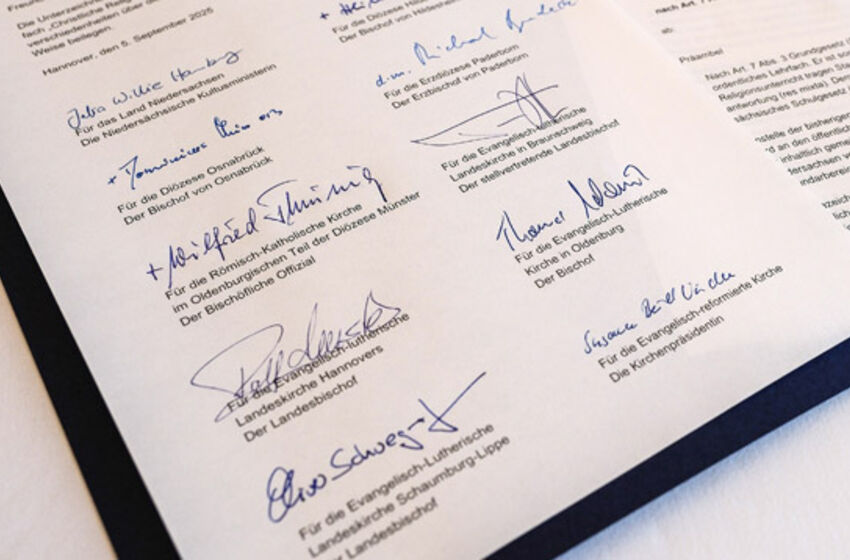 Die Unterzeichn
fach „Christliche Relig
verschiedenheiten über di
Weise beilegen.
Hannover, den 5. September 2025
Julia Willie Hamburg
Für das Land Niedersachsen
Die Niedersächsische Kultusministerin
+ Dominicus
Für die Diözese Osnabrück
Der Bischof von Osnabrück
+ Wilfried Theising
Für die Römisch-Katholische Kirche
im Oldenburgischen Teil der Diözese Münster
Der Bischöfliche Offizial
Für die Evangelisch-lutherische
Landeskirche Hannovers
Der Landesbischof
Oliver Schuegraf
Für die Evangelisch-Lutherische
Landeskirche Schaumburg-Lippe
Landesbischof
Für die Diözese Hilde
Der Bischof von Hildeshei
Für die Erzdiözese Paderborn
Der Erzbischof von Paderborn
Für die Evangelisch-lutherische
Landeskirche in Braunschweig
Der stellvertretende Landesbischof
Thomas Adomeit
Für die Evangelisch-Lutherische
Kirche in Oldenburg
Der Bischof
Susanne
Für die Evangelisch-reformierte Kirche
Die Kirchenpräsidentin
nach Art. 7 Abs
ab:
Präambel
Nach Art. 7 Abs. 3 Grundgesetz (
ordentliches Lehrfach. Er ist
Religionsunterricht tragen Sta
antwortung (res mixta). De
sächsisches Schulgesetz
stelle der bisherige
an den öffentlic
inhaltlich gemei